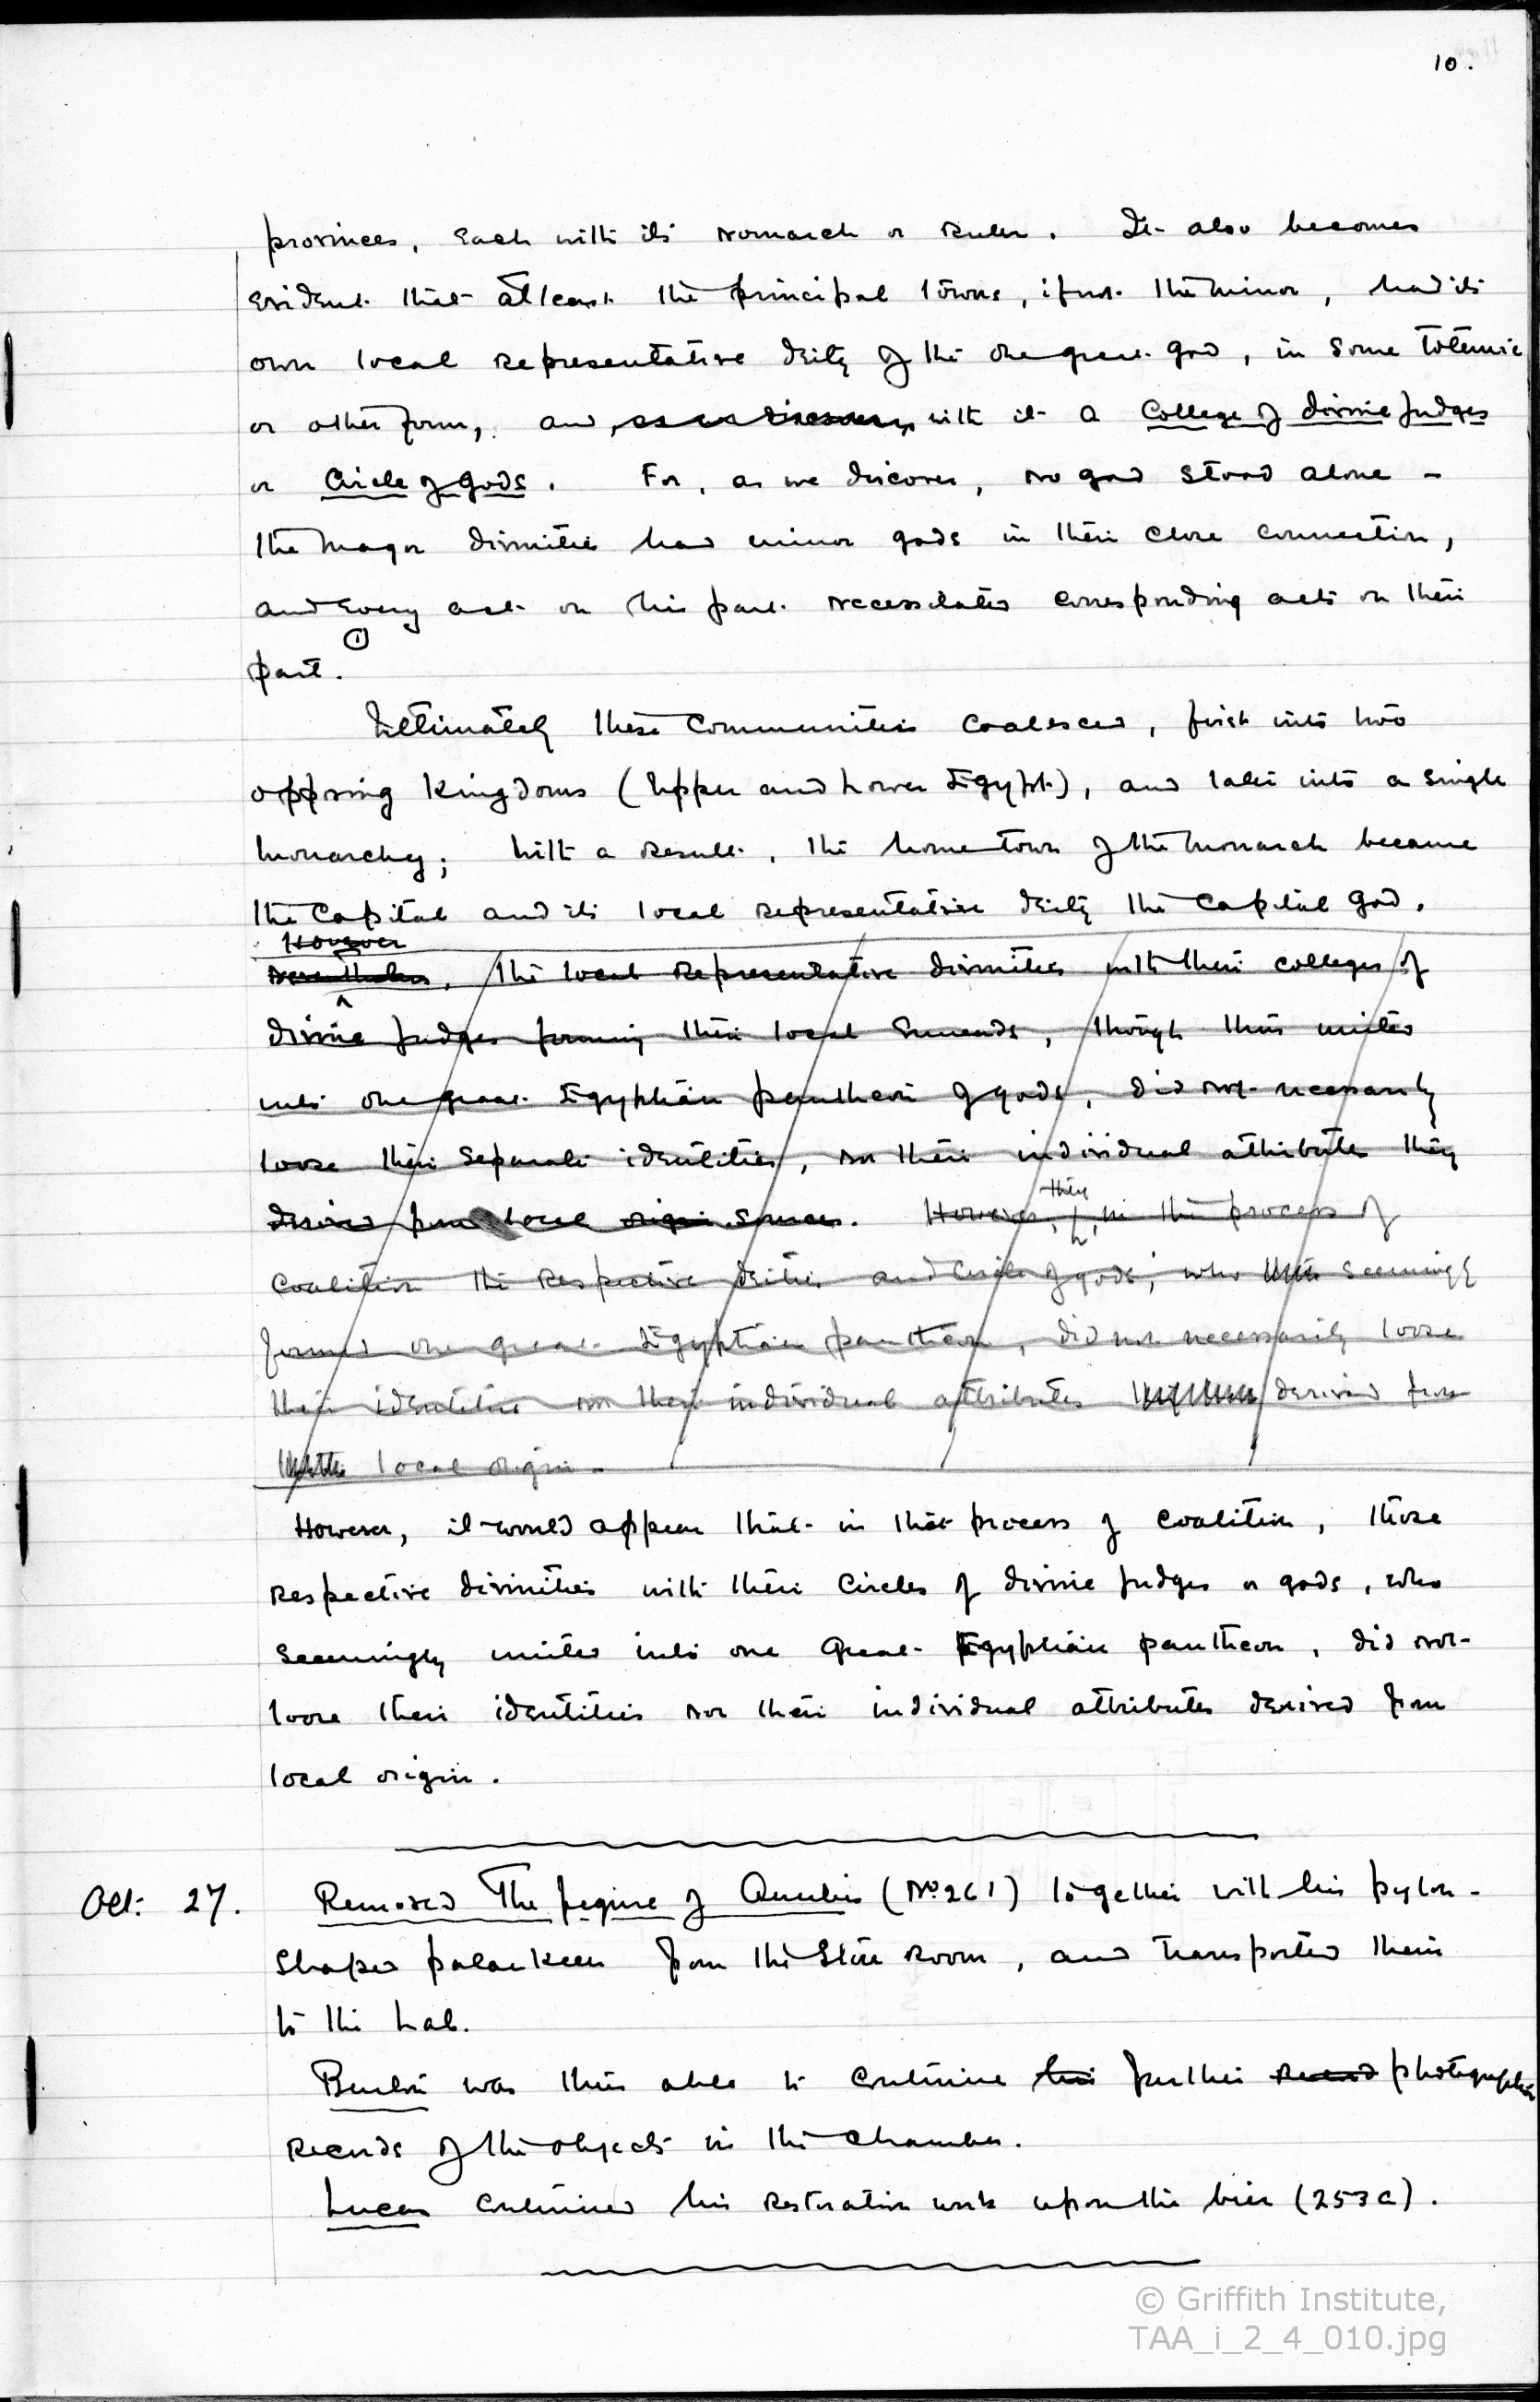 10.
provinces, each with its Nomarch or Ruler. It also becomes
evident that at least the principal towns, if not the minor, had its
own local representative deity of the one great god, in some totemic
or other form, and, as we discover, with it a College of divine judges
or Circle of gods. For, as we discover, no god stood alone –
the major divinities had minor gods in their close connection,
and every act on his part necessitates corresponding acts on their
①
part.
Ultimately these communities coalesced, first into two
opposing kingdoms (Upper and Lower Egypt), and later into a single
monarchy; with a result, the home town of the monarch became
the Capital and its local representative deity the Capital god.
However
Nevertheless, the local representative divinities with their colleges of
divine judges forming their local Enneads, though thus united
into one great Egyptian pantheon of gods, did not necessarily
loose their separate identities, nor their individual attributes they
derived from local origin sources. However, they, in the process of
coalition the respective deities and circle of gods, who seemingly
formed one great Egyptian pantheon, did not necessarily loose
their identities nor their individual attributes derived from
local origin.
However, it would appear that in that process of coalition, those
respective divinities with their Circles of divine judges or gods, who
seemingly united into one Great Egyptian pantheon, did not
loose their identities nor their individual attributes derived from
local origin.
Oct: 27. Removed The figure of Anubis (No 261) together with his pylon-
shaped palankeen from the Store Room, and transported them
to the Lab.
Burton was thus able to continue his further record photographic
records of the objects in the chamber.
Lucas continued his restoration work upon the bier (253a).
© Griffith Institute,
TAA_i_2_4_010.jpg